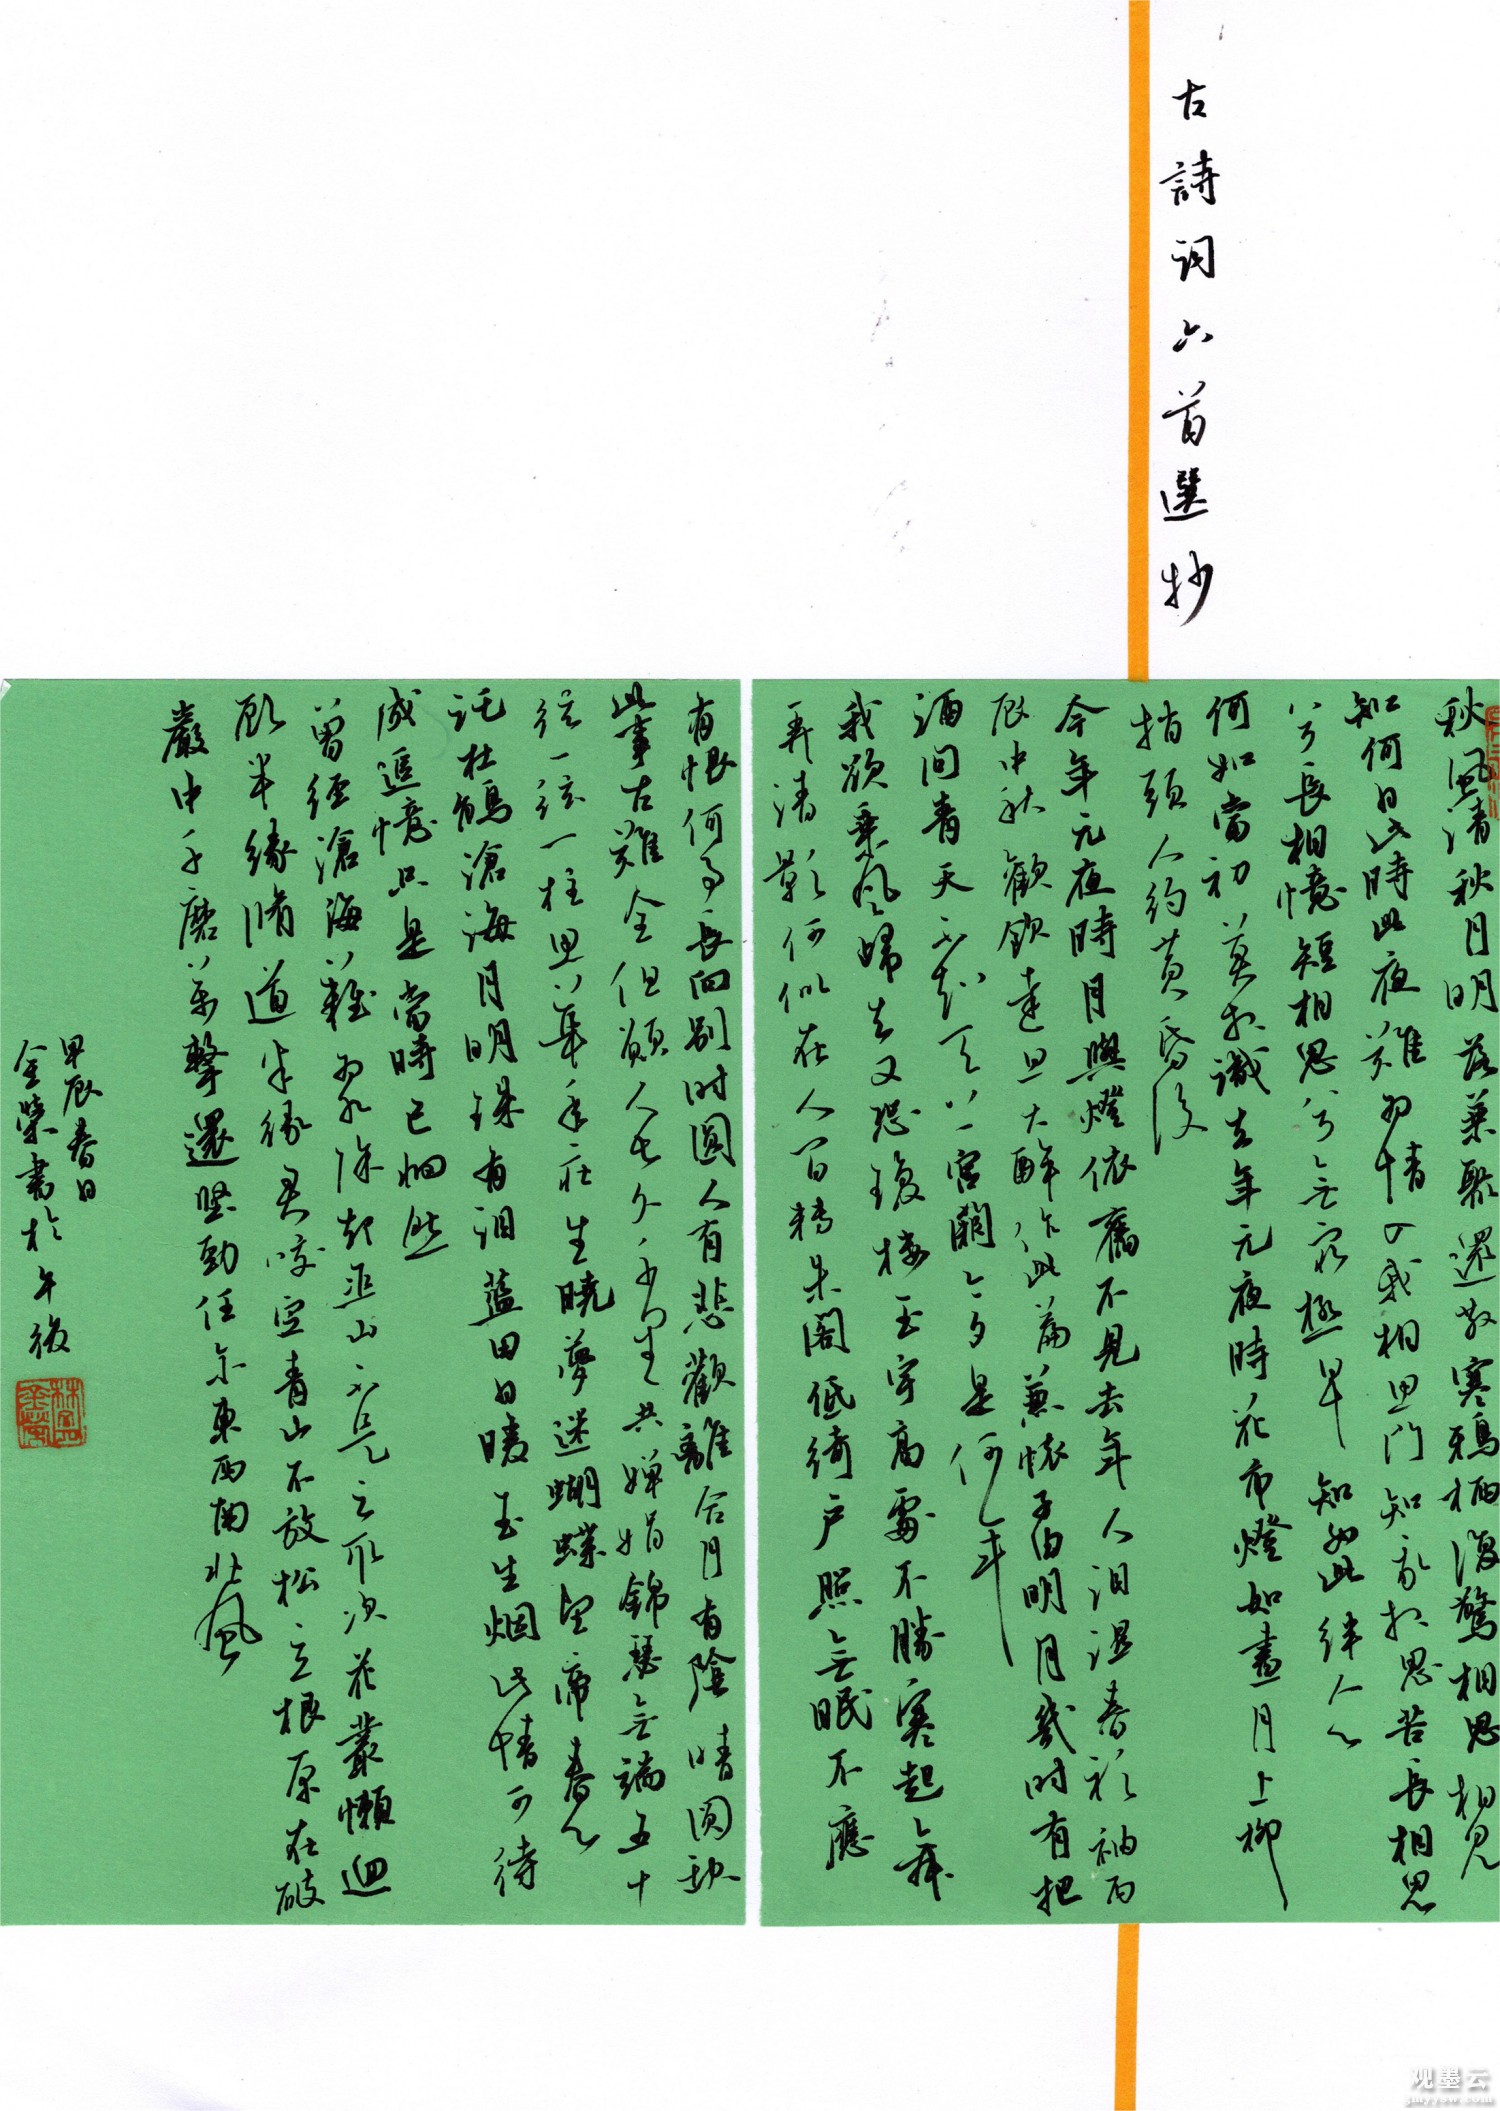 古詩詞六首選抄
秋風清秋月明落葉聚還散寒鴉栖復驚相思相見
知何日此時此夜難為情入我相思門知我相思苦長相思
兮長相憶短相思兮無窮極早知如此絆人心
何如當初莫相識去年元夜時花市燈如晝月上柳
梢頭人約黃昏後
今年元夜時月與燈依舊不見去年人泪濕春衫袖丙
辰中秋歡飲達旦大醉作此篇兼懷子由明月幾时有把
酒問青天不知天上宮闕今夕是何年
我欲乘風歸去又恐瓊樓玉宇高處不勝寒起舞
弄清影何似在人間轉朱閣低綺戶照無眠不應
有恨何事長向別时圓人有悲歡離合月有陰晴圓缺
此事古難全但願人長久千里共嬋娟錦瑟無端五十
弦一弦一柱思華年莊生曉夢迷蝴蝶望帝春心
託杜鵑滄海月明珠有泪藍田日暖玉生烟此情可待
成追憶只是當時已惘然
曾經滄海難為水除却巫山不是雲取次花叢懶迴
顧半緣脩道半緣君咬定青山不放松立根原在破
巖中千磨萬擊還堅勁任尔東西南北風
甲辰春日
金榮書於午後
观墨云
gmyyow.com